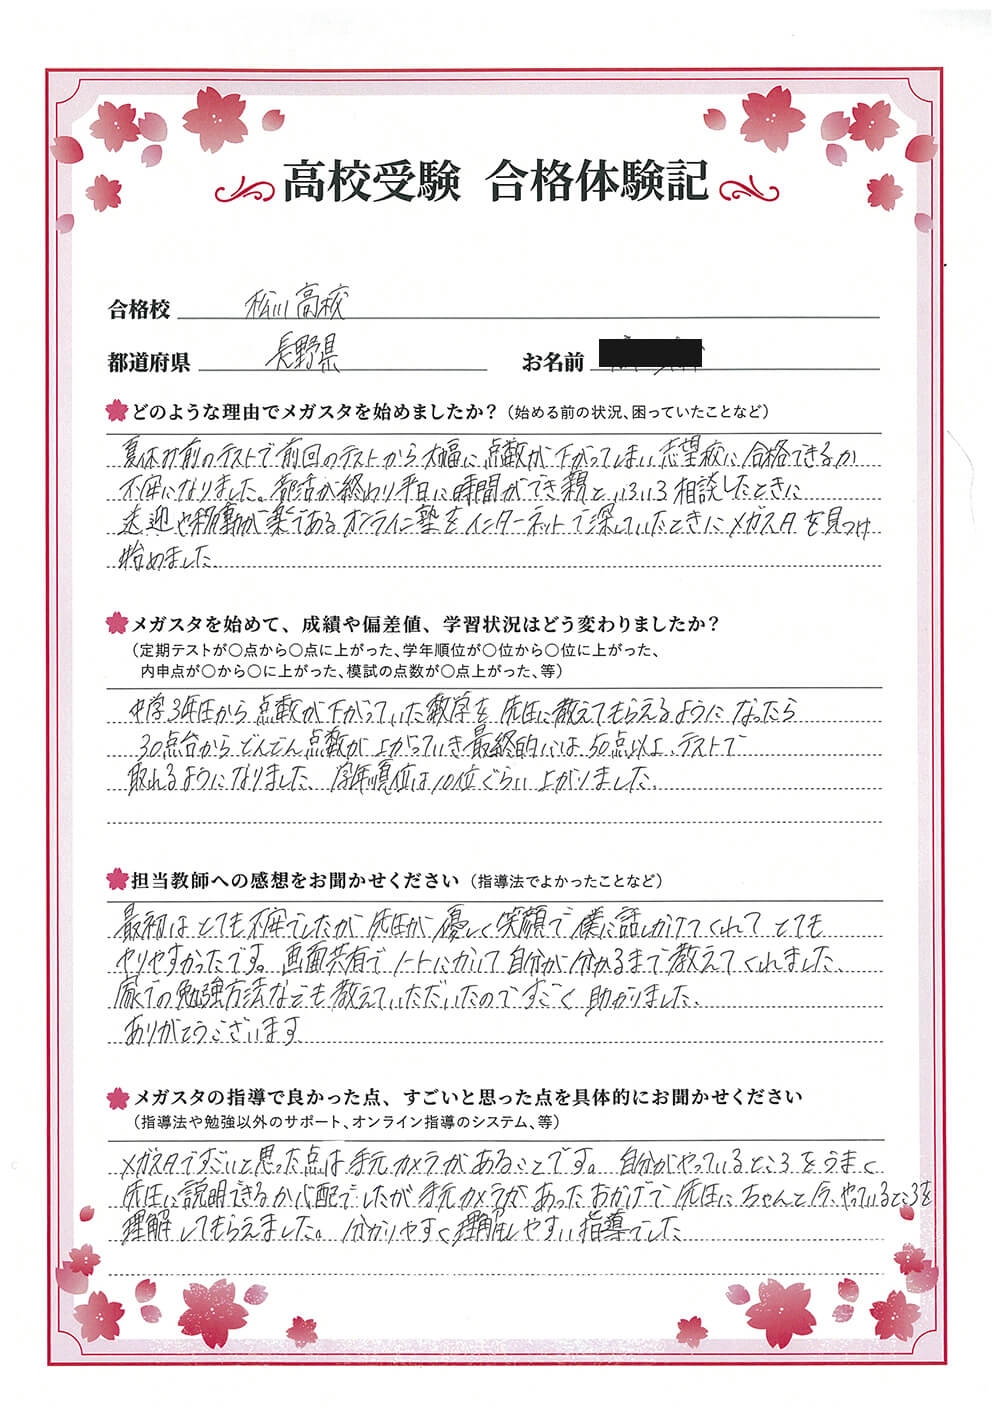 高校受験 合格体験記
合格校 松川高校
都道府県 長野県 お名前
どのような理由でメガスタを始めましたか？（始める前の状況、困っていたことなど）
夏休み前のテストで前回のテストから大幅に点数が下がってしまい志望校に合格できるか
不安になりました。部活が終わり平日に時間ができ親といろいろ相談したときに
送迎や移動が楽であるオンライン塾をインターネットで探していたときにメガスタを見つけ
始めました。
メガスタを始めて、成績や偏差値、学習状況はどう変わりましたか？
（定期テストが〇点から〇点に上がった、学年順位が〇位から〇位に上がった、
内申点が〇から〇に上がった、模試の点数が〇点上がった、等）
中学3年生から点数が下がっていた数学を先生に教えてもらえるようになったら
30点台からどんどん点数が上がっていき最終的には50点以上テストで
取れるようになりました。学年順位は10位ぐらい上がりました。
担当教師への感想をお聞かせください（指導法でよかったことなど）
最初はとても不安でしたが先生が優しく笑顔で僕に話しかけてくれてとても
やりやすかったです。画面共有でノートにかいて自分が分かるまで教えてくれました。
家での勉強方法なども教えていただいたのですごく助かりました。
ありがとうございます
メガスタの指導で良かった点、すごいと思った点を具体的にお聞かせください
（指導法や勉強以外のサポート、オンライン指導のシステム、等）
メガスタですごいと思った点は手元カメラがあることです。自分がやっているところをうまく
先生に説明できるか心配でしたが手元カメラがあったおかげで先生にちゃんと今、やっているところを
理解してもらえました。分かりやすく理解しやすい指導でした